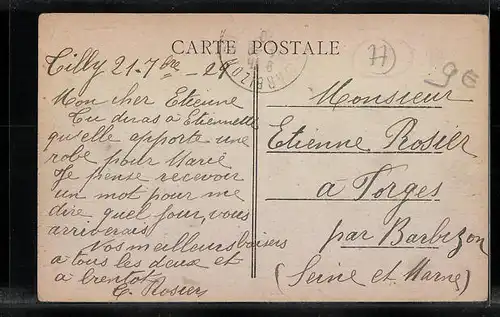 CARTE POSTALE
Tilly 21-7bre-29
Mon cher Etienne
Tu diras à Etiennette
qu'elle apporte une
robe pour Marie
Je pense recevoir
un mot pour me
dire quel jour, vous
arriverais
Vos meilleurs baisers
a tous les deux et
a bientot
E. Rosier
BARBIZON
77
9€
Monsieur
Etienne Rosier
à Forges
par Barbizon
(Seine et Marne)